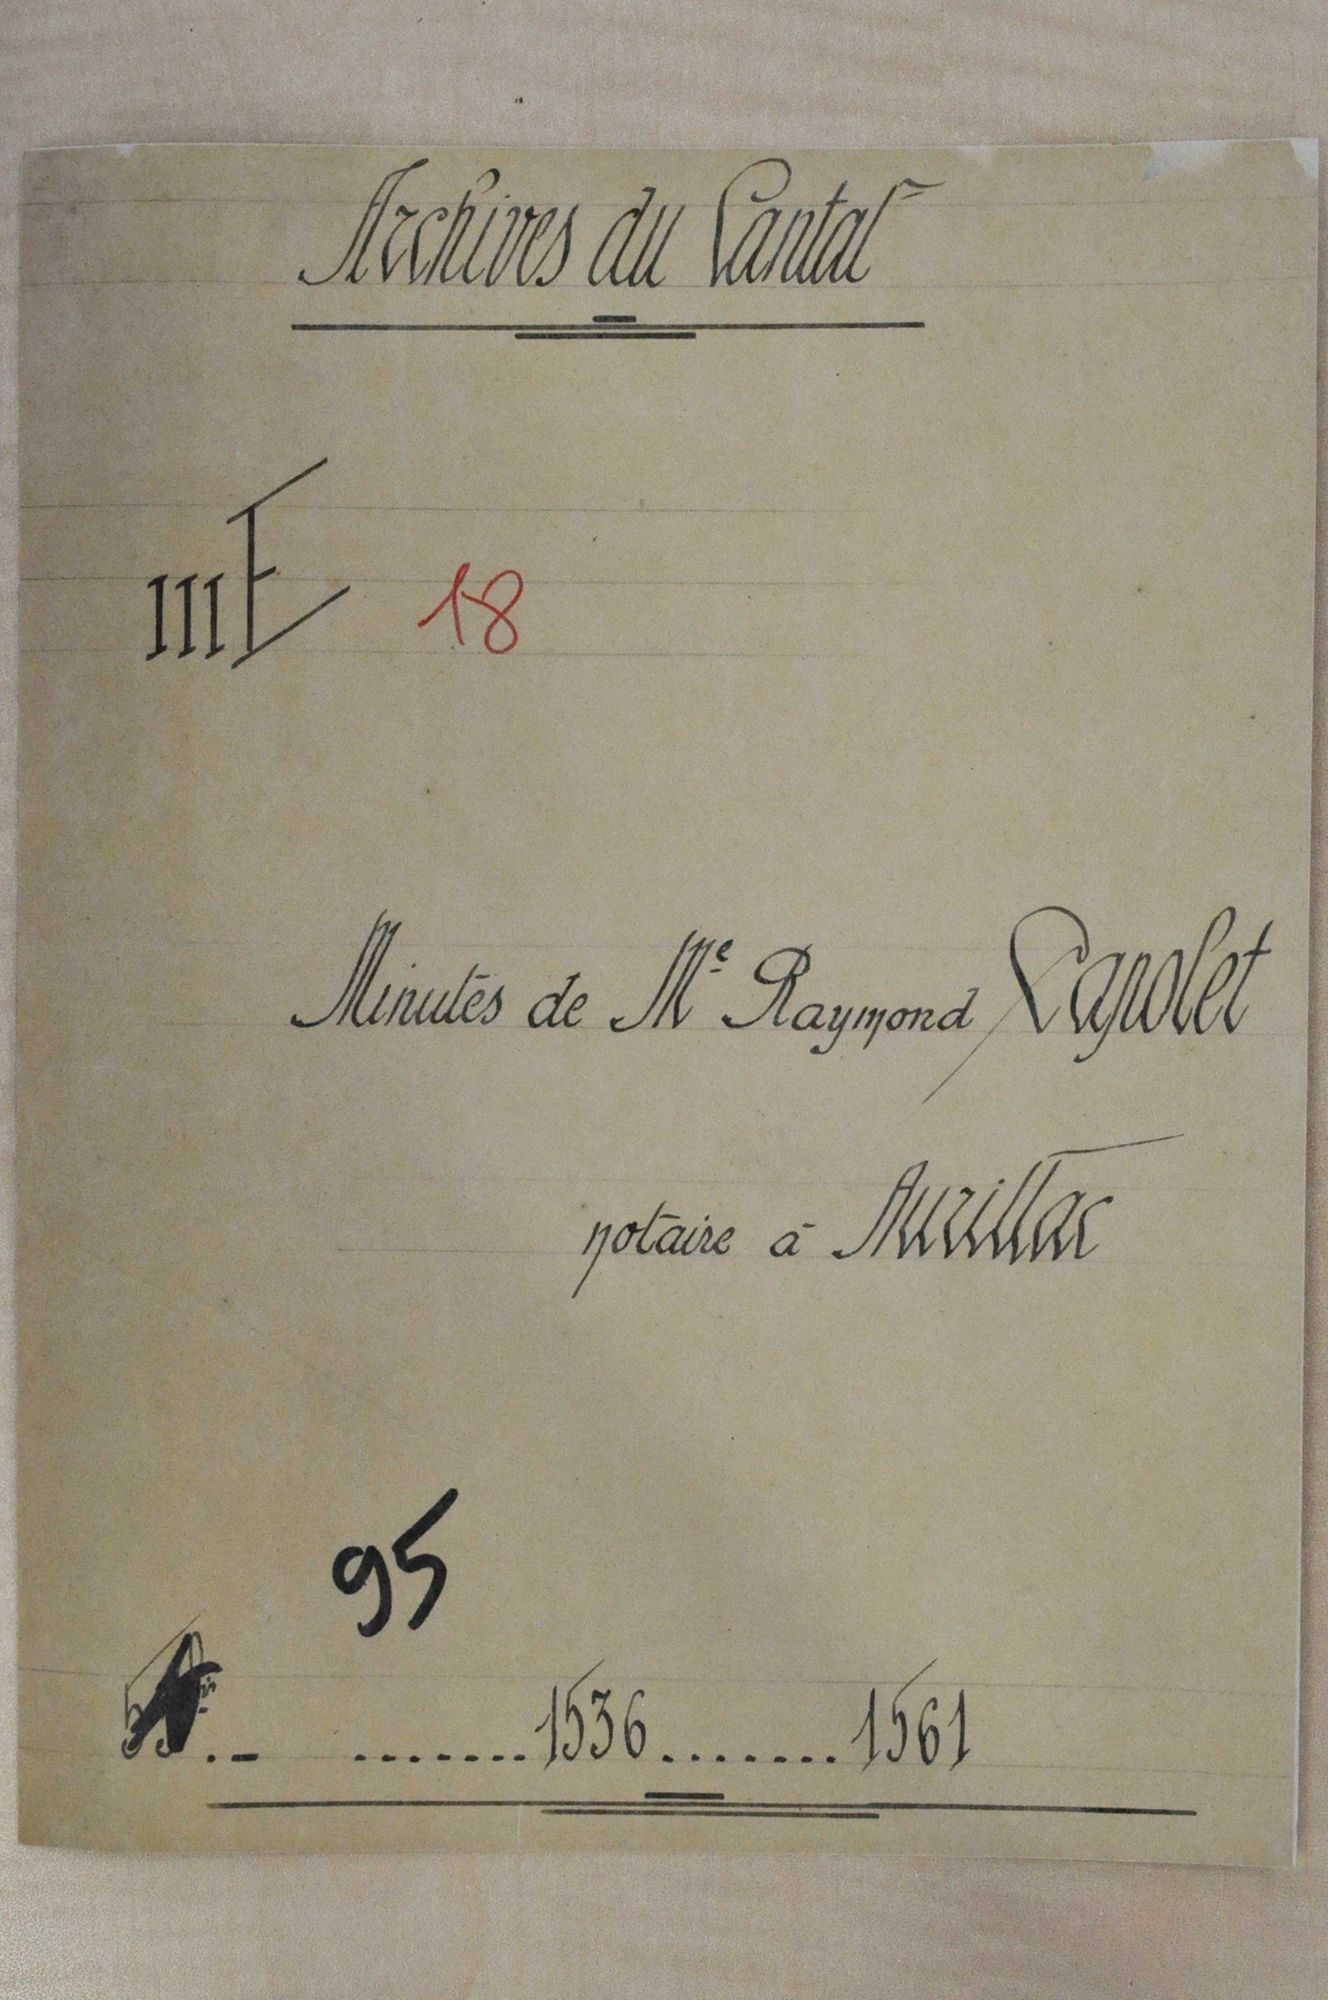 Archives du Cantal
III E 18
Minutes de Mᵉ Raymond Capolet
notaire à Aurillac
95
.- .......1536.......1561